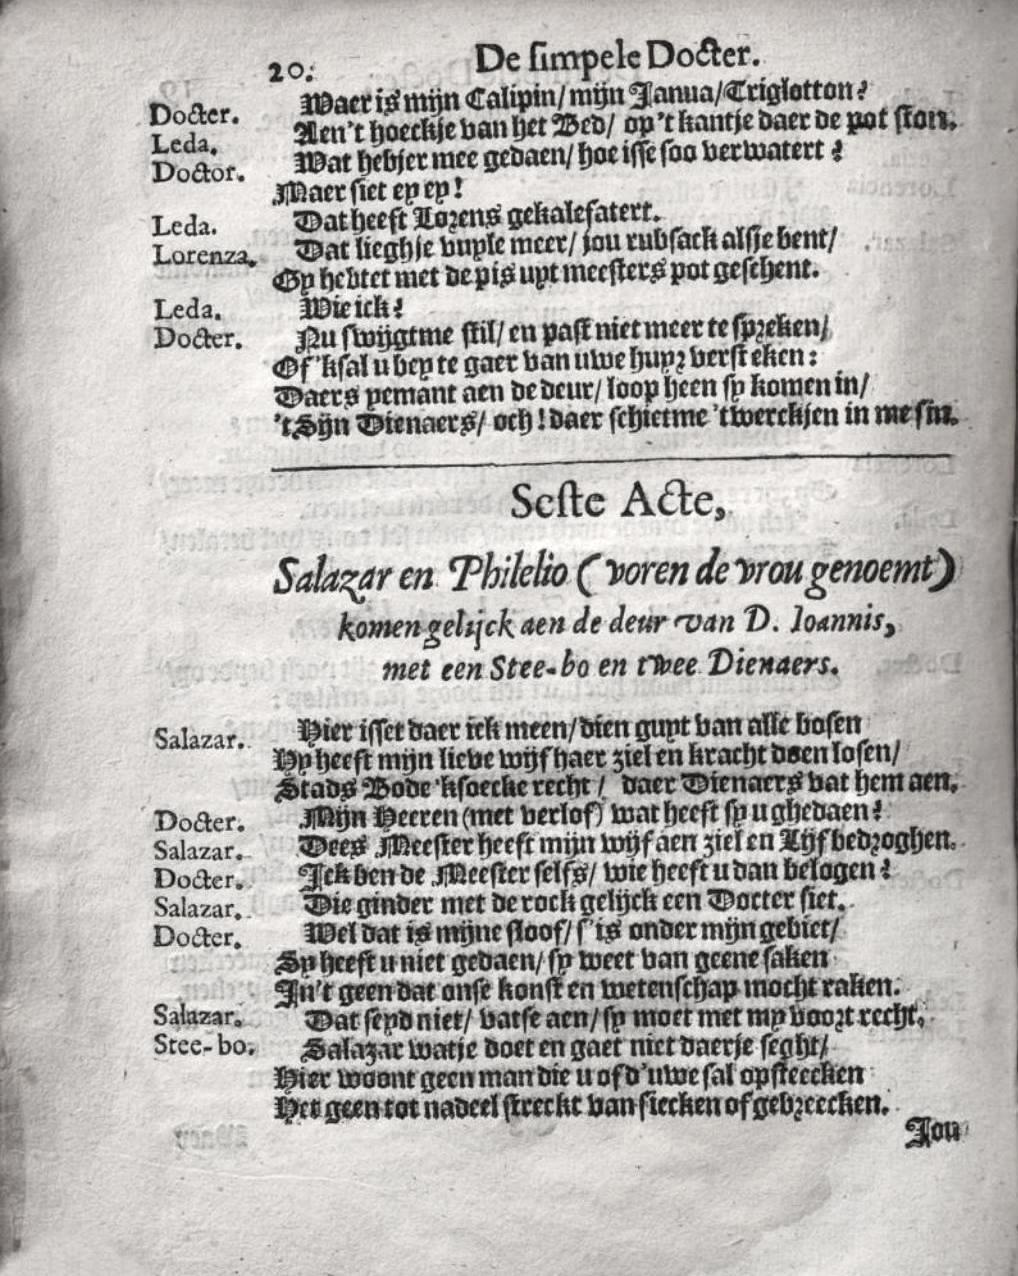 20. De simpele Docter.
Docter. Waer is mijn Calipin/ mijn Janua/ Triglotton?
Leda. Aen't hoeckje van het Bed/ op 't kantje daer de pot ston.
Doctor. Wat hebjer mee gedaen/ hoe isse soo verwatert?
Maer siet ey ey!
Leda. Dat heeft Lorens gekalefatert.
Lorenza. Dat lieghje vuyle meer/ jou rubsack alsje bent/
Gy hebtet met de pis uyt meesters pot geschent.
Leda. Wie ick?
Docter. Nu swijgtme stil/ en past niet meer te spreken/
Of 'k sal u bey te gaer van uwe huyz verst eken:
Daers yemant aen de deur/ loop heen sy komen in/
't Sijn Dienaers/ och! daer schietme 't werckjen in me sin.
Seste Acte,
Salazar en Philelio (voren de vrou genoemt)
komen gelijck aen de deur van D. Ioannis,
met een Stee-bo en twee Dienaers.
Salazar. Hier isset daer ick meen/ dien guyt van alle bosen
Hy heeft mijn lieve wijf haer ziel en kracht doen losen/
Stads Bode 'k soecke recht/ daer Dienaers vat hem aen.
Docter. Mijn Heeren (met verlof) wat heeft sy u ghedaen?
Salazar. Dees Meester heeft mijn wijf aen ziel en Lijf bedroghen.
Docter. Ick ben de Meester selfs/ wie heeft u dan belogen?
Salazar. Die ginder met de rock gelijck een Docter siet.
Docter. Wel dat is mijne sloof/ s'is onder mijn gebiet/
Sy heeft u niet gedaen/ sy weet van geene saken
In't geen dat onse konst en wetenschap mocht raken.
Salazar. Dat seyd niet/ vatse aen/ sy moet met my voort recht.
Stee-bo. Salazar watje doet en gaet niet daerje seght/
Hier woont geen man die u of d'uwe sal opsteecken
Het geen tot nadeel streckt van siecken of gebreecken.
Jou